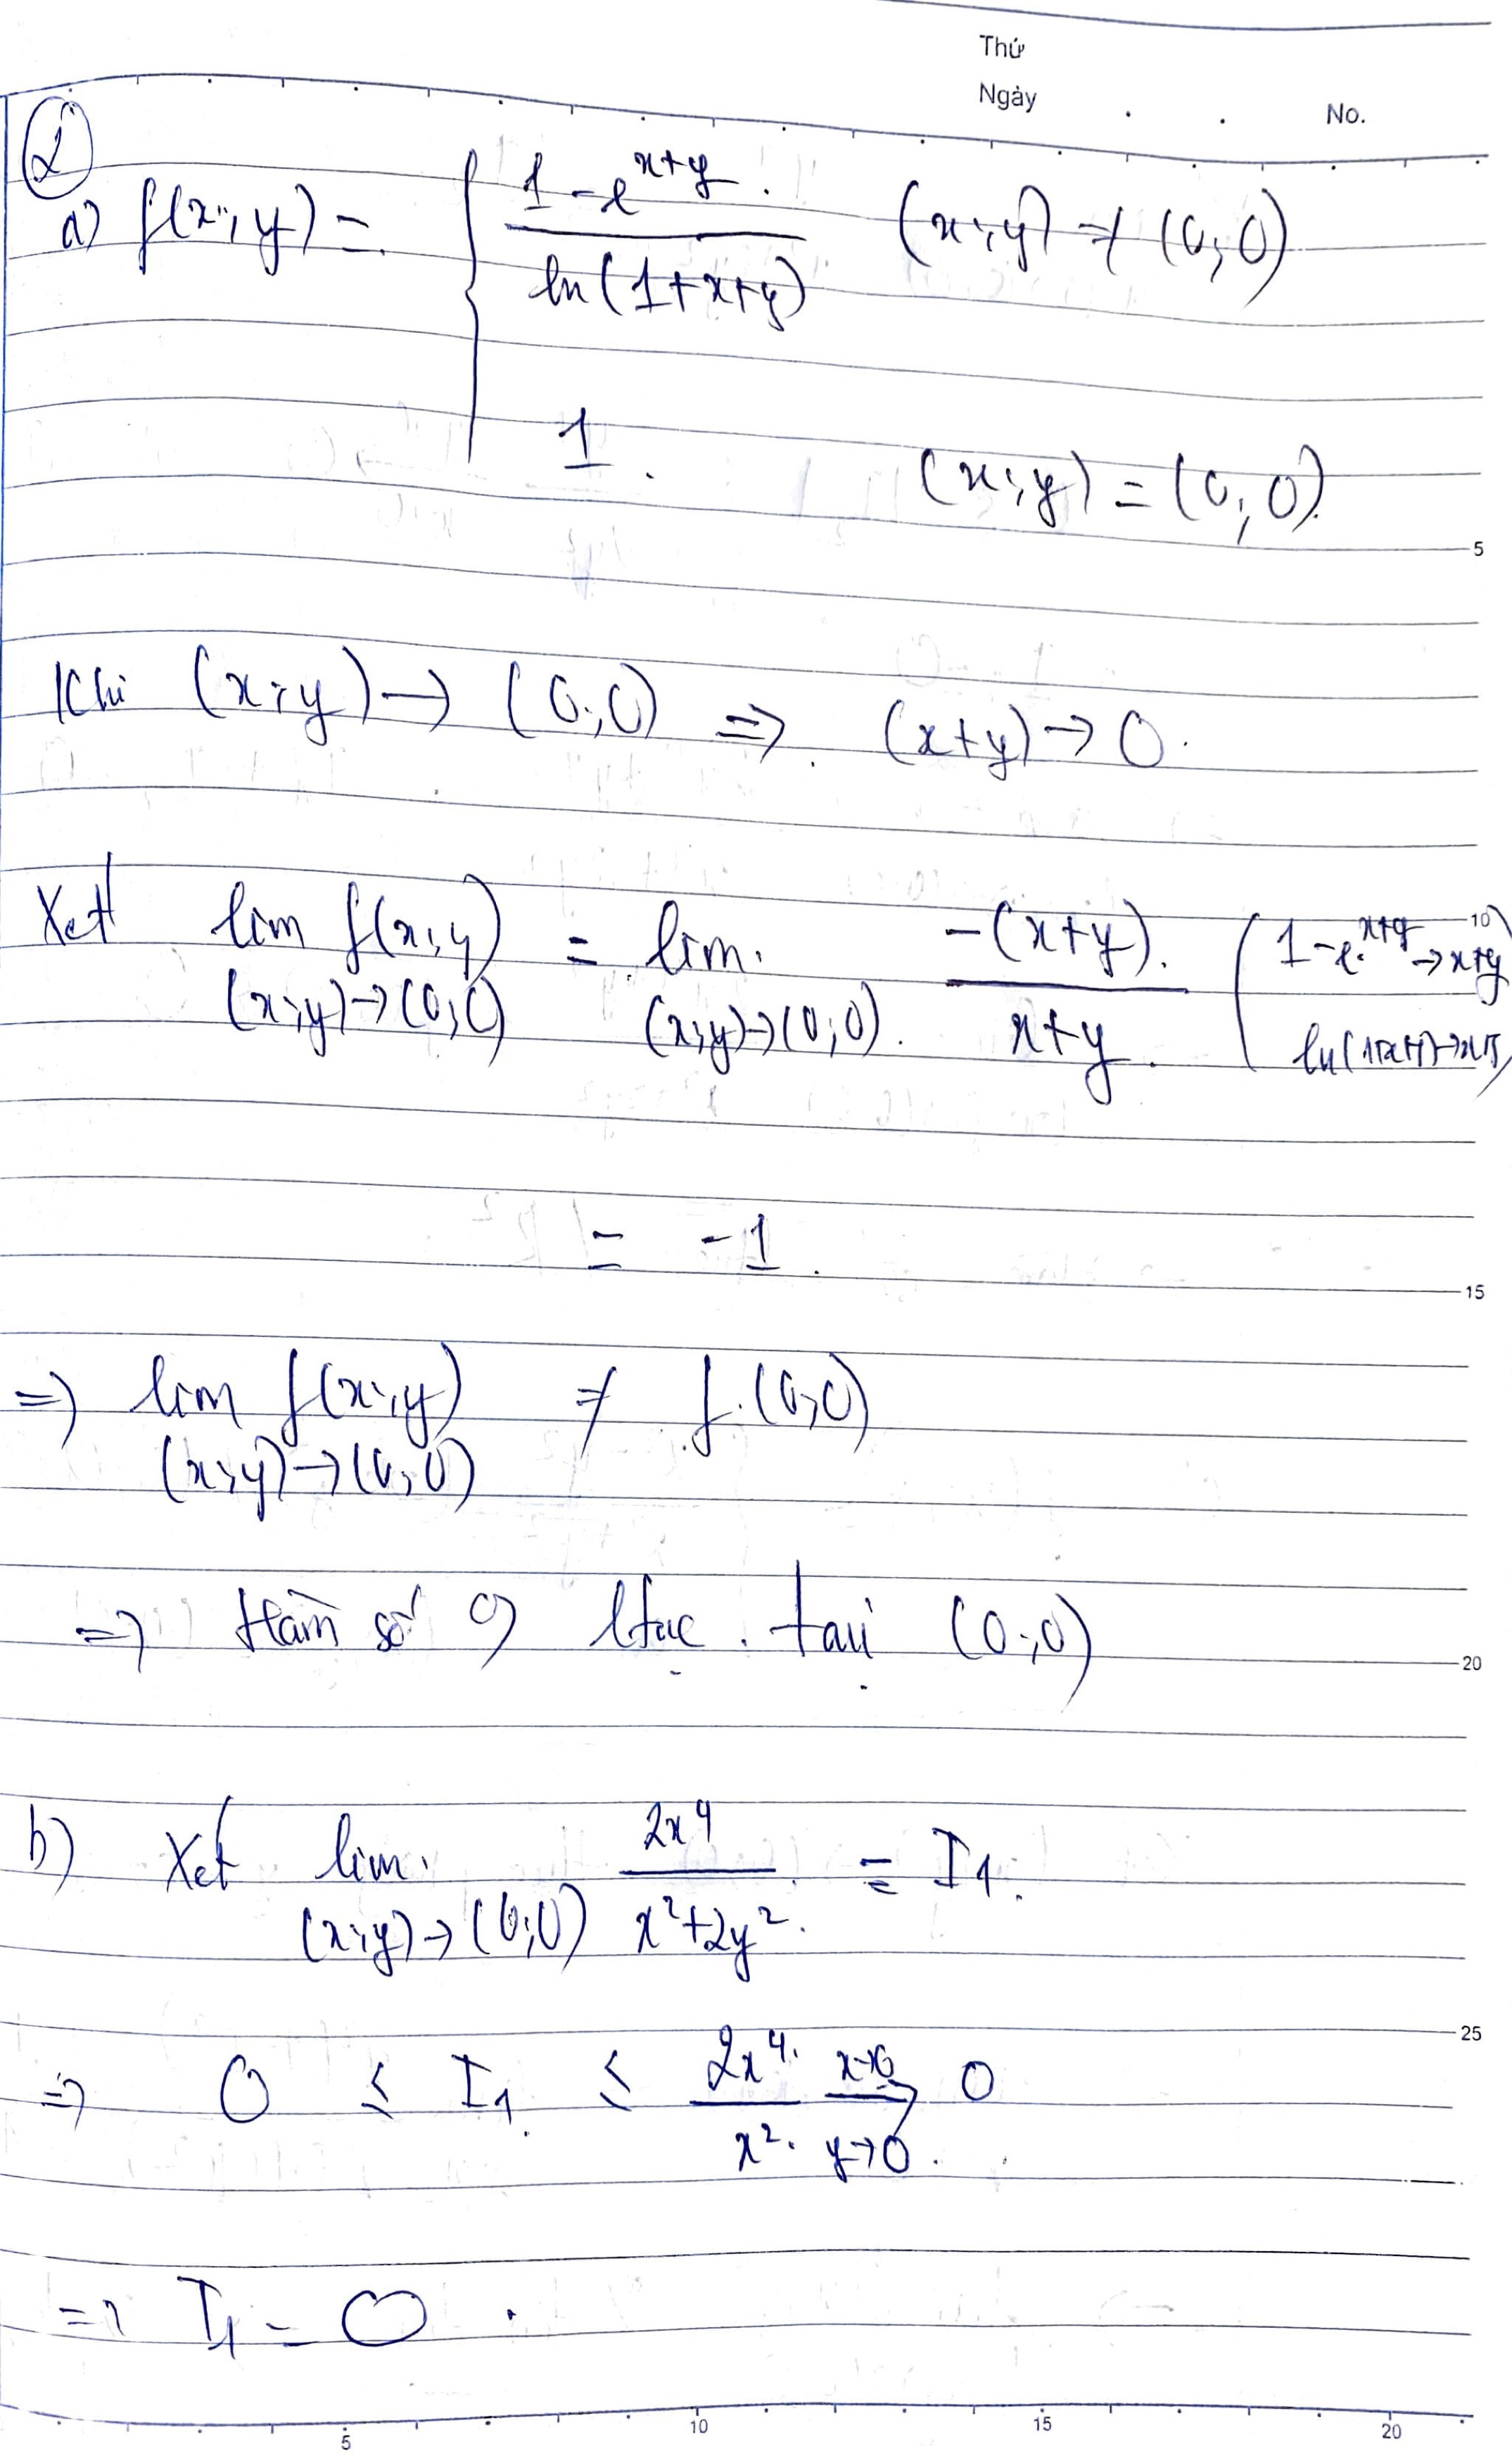 Thứ
Ngày . . No.
①
a) f(x;y) = { (1 - e^{x+y}) / (ln(1+x+y)) (x;y) ≠ (0;0)
1 . (x;y) = (0;0)
5
Khi (x;y) → (0;0) ⇒ (x+y) → 0.
Xét lim_{(x;y)→(0;0)} f(x;y) = lim_{(x;y)→(0;0)} (-(x+y)) / (x+y) ( 1-e^{x+y} → x+y
ln(1+x+y) → x+y )
10
= -1.
15
⇒ lim_{(x;y)→(0;0)} f(x;y) ≠ f(0;0)
⇒ Hàm số ltục tại (0;0)
20
b) Xét lim_{(x;y)→(0;0)} 2x^4 / (x^2+2y^2) = I1.
25
⇒ 0 ≤ I1 ≤ 2x^4 / x^2 → 0 (x→0, y→0)
⇒ I1 = 0.
5 10 15 20